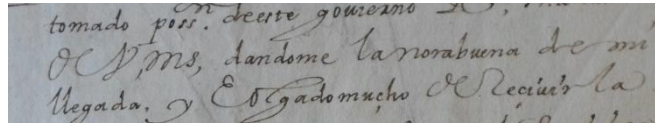 tomado poss.n deeste gouierno
de V, ms, dandome la norabuena de mi
llegada, y E olgado mucho de Reciuir la